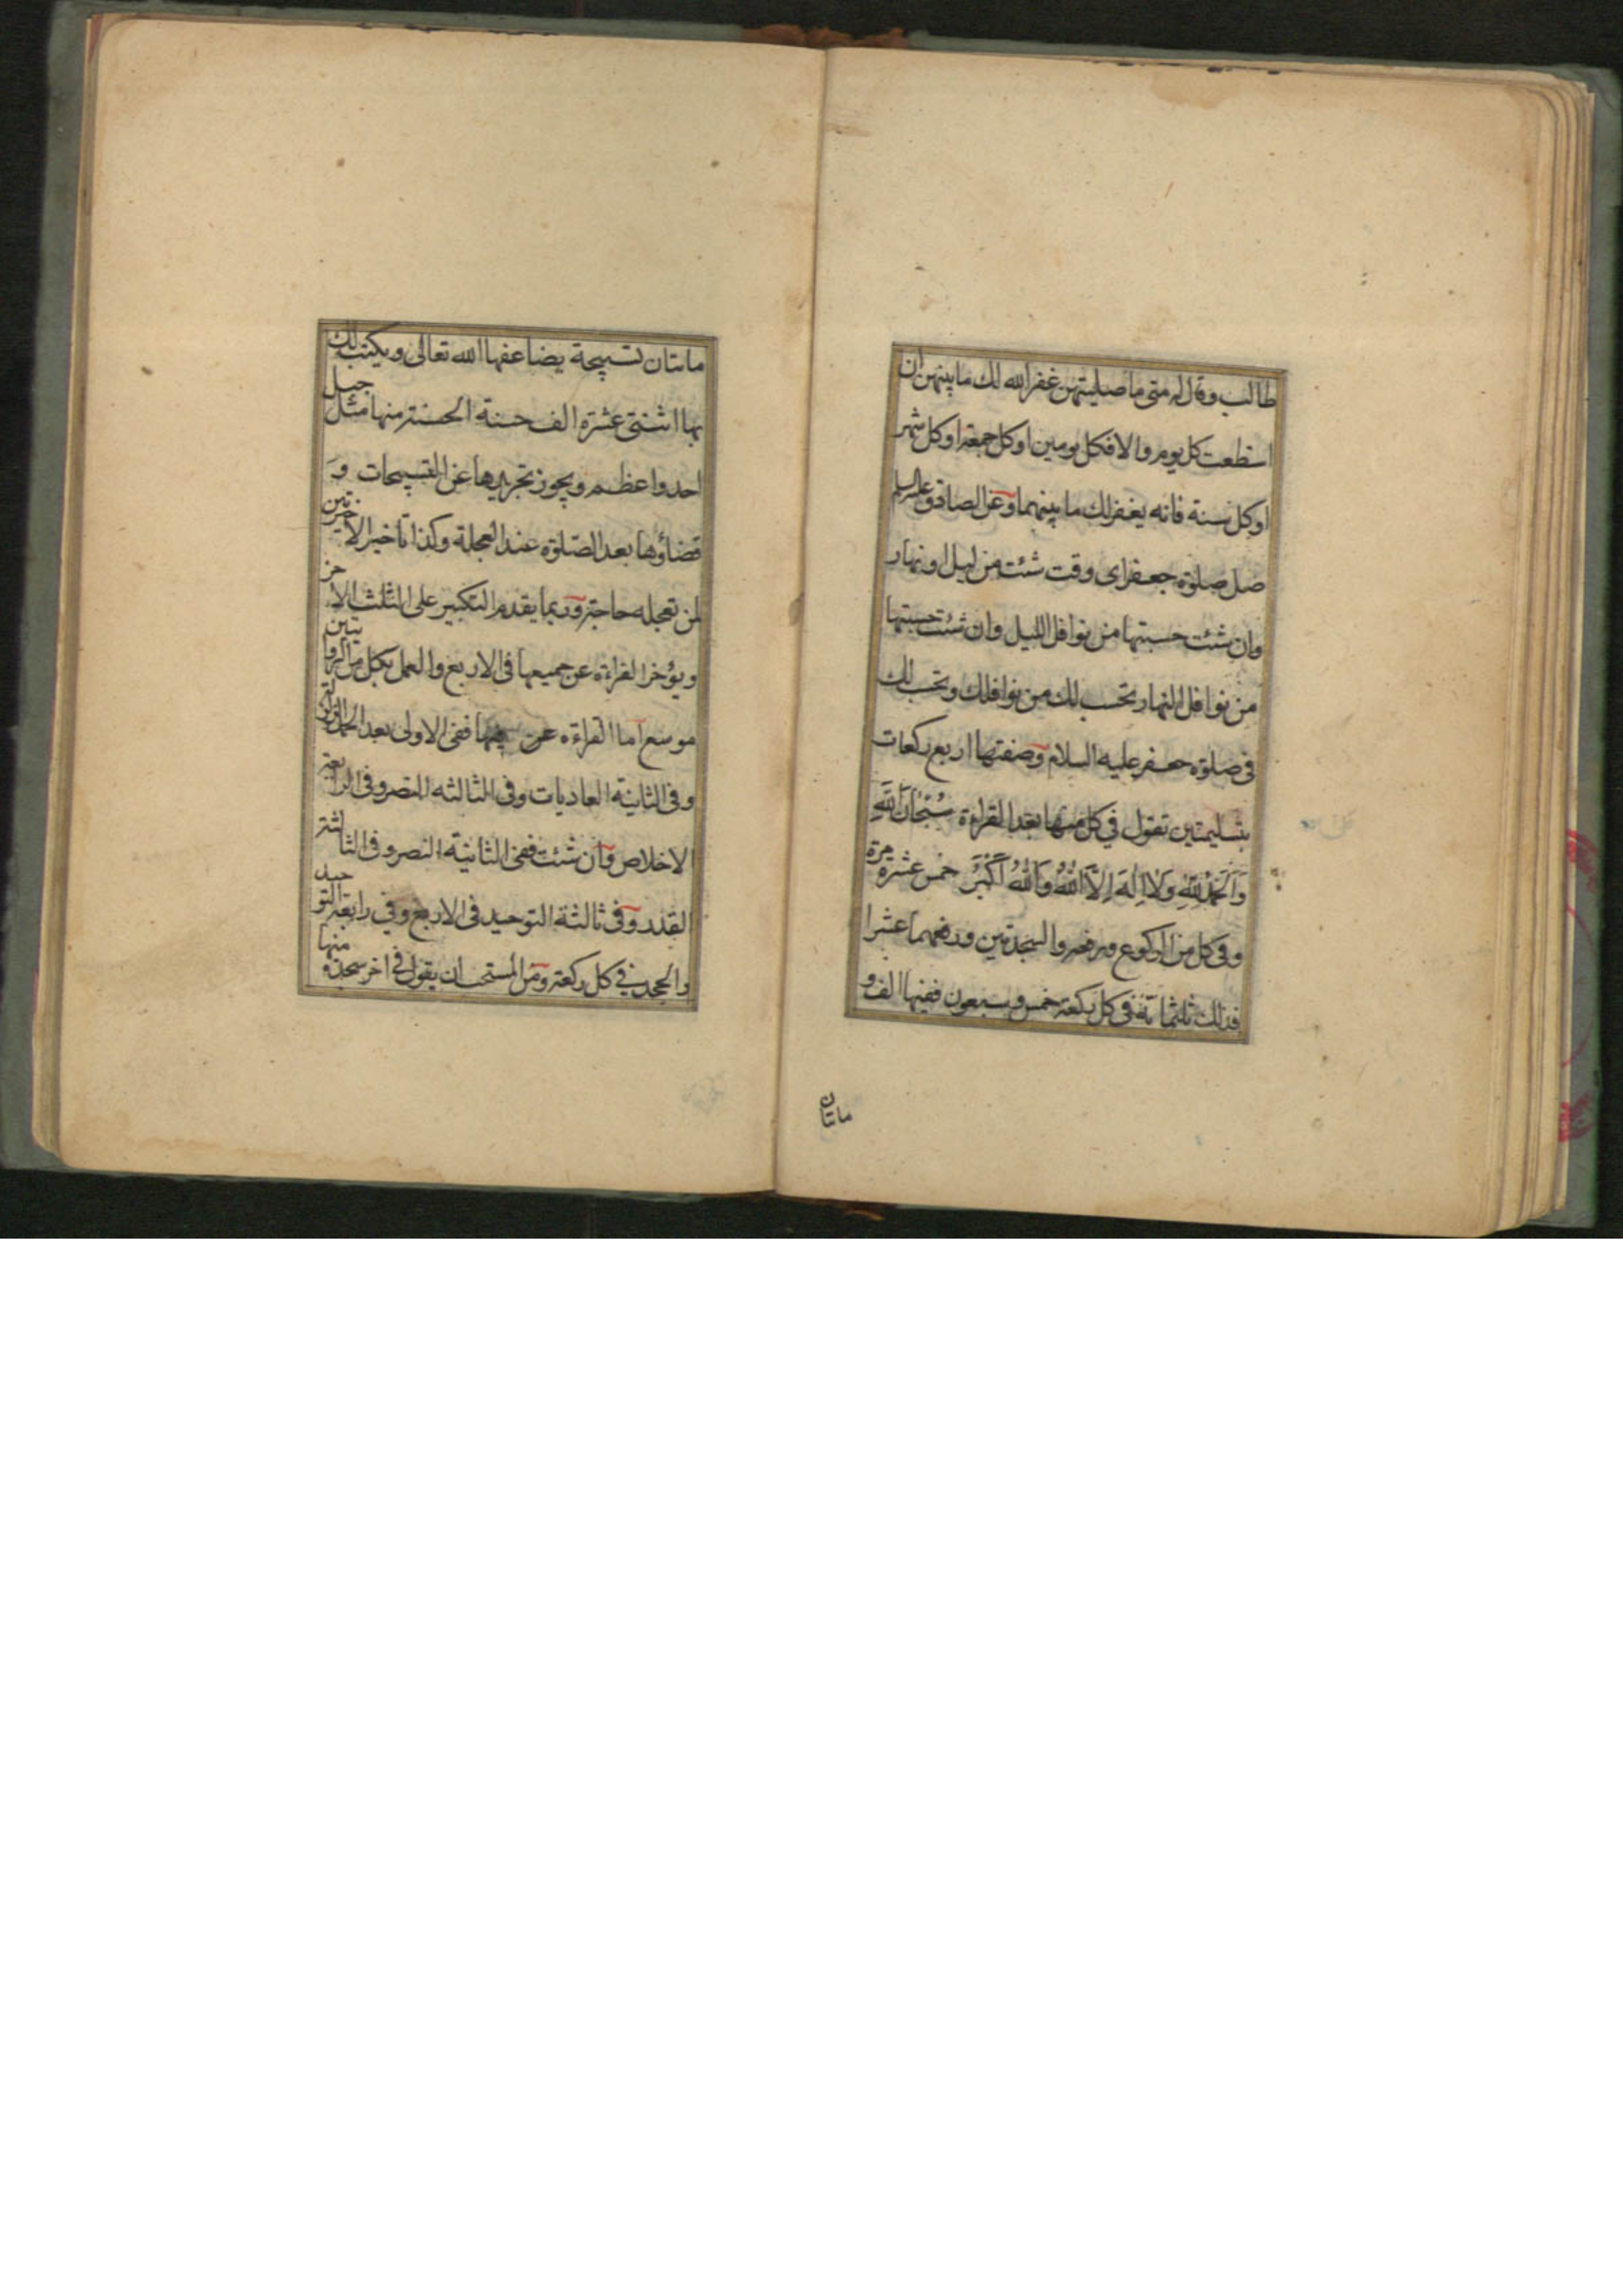 طالب وقال له متى ما صليتهن غفر الله لك ما بينهن ان
استطعت كل يوم والا فكل يومين او كل جمعة او كل شهر
او كل سنة فانه يغفر لك ما بينهما وعن الصادق عليه السلم
صل صلوة جعفر اى وقت شئت من ليل او نهار
وان شئت حسبتها من نوافل الليل وان شئت حسبتها
من نوافل النهار تحسب لك من نوافلك وتحسب لك
فى صلوة جعفر عليه السلام وصفتها اربع ركعات
بتسليمتين تقول في كل منها بعد القراءة سُبْحَانَ اللّٰهِ
وَالْحَمْدُ لِلّٰهِ وَلَا اِلٰهَ اِلَّا اللّٰهُ وَاللّٰهُ اَكْبَرُ خمس عشرة مرة
وفى كل من الركوع ورفعه والسجدتين ورفعهما عشرا
فذلك ثلثمائة ففى كل ركعة خمس وسبعون ففيها الف و
مائتان
مائتان تسبيحة يضاعفها الله تعالى ويكتب لك
بها اثنتى عشرة الف حسنة الحسنة منها مثل جبل
احد واعظم ويجوز تجريدها عن التسبيحات و
قضاؤها بعد الصلوة عند العجلة وكذا تاخير الاخرتين
لمن تعجله حاجة وربما يقدم التكبير على الثلث الاخر
ويؤخر القراءة عن جميعها فى الاربع والعمل بكل من الروايتين
موسع اما القراءة فيها ففى الاولى بعد الحمد الزلزلة
وفى الثانية العاديات وفى الثالثه النصر وفى الرابعة
الاخلاص وان شئت ففى الثانية النصر وفى الثالثة
القدر وفى ثالثة التوحيد فى الاربع وفي رابعة التوحيد
والجحد في كل ركعة ومن المستحب ان يقول في اخر سجدة منها